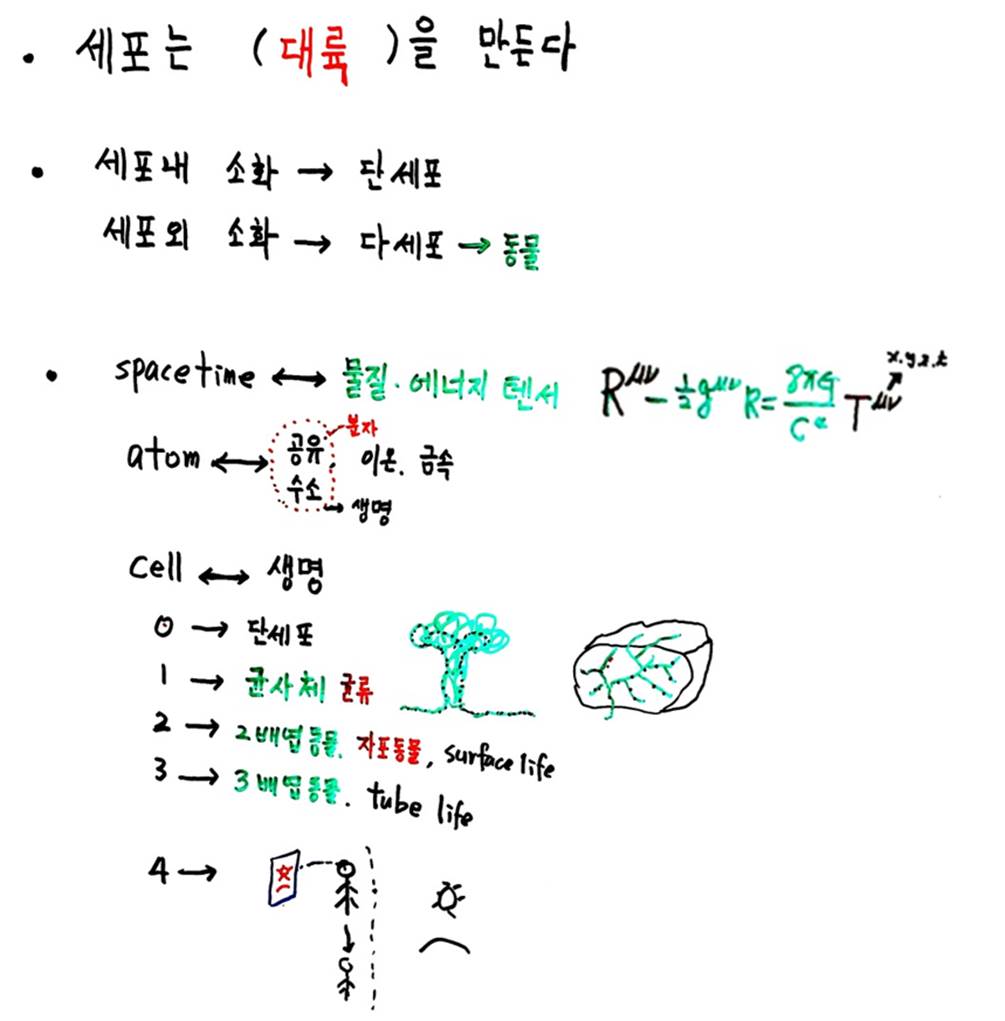 • 세포는 (대륙)을 만든다
• 세포내 소화 → 단세포
세포외 소화 → 다세포 → 동물
• spacetime ↔ 물질·에너지 텐서 R^μν - ½g^μν R = 8πG/C⁴ T^μν x.y.z.t
분자
atom ↔ 공유, 이온, 금속
수소 → 생명
cell ↔ 생명
0 → 단세포
1 → 균사체 균류
2 → 2배엽동물. 자포동물, surface life
3 → 3배엽동물. tube life
4 →